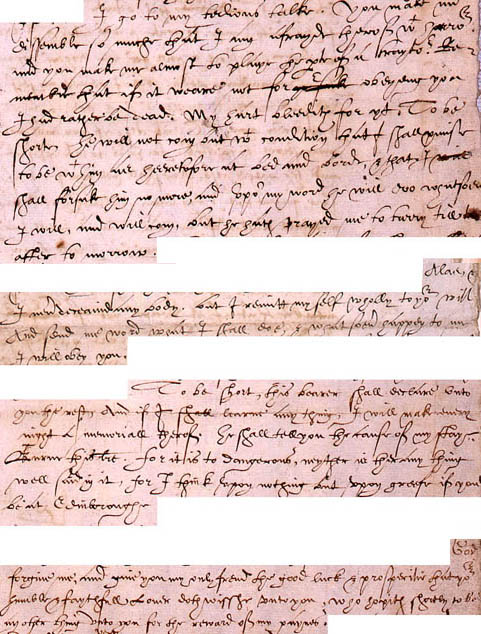 I go to my tedious talke. You make me
dissemble so muche that I am afrayde hereof wt horro
and you make me almost to playe the pte of a traytor. Re
member that if it weare not for obeyeng you
I had rather be dead. My hart bleedith for yt. To be
shorte he will not com but wt condition that I shall promise
to be wt him as heeretofore at bed and borde, & that I
shall forsake him no more, and vpon my word he will doo whatsoeu
I will, and will com, but he hath prayed me to tarry till
after to morrow.
Alas, &
I neu deceaued any body, but I remitt my self wholly to yor will
And send me word what I shall doe, & whatsoeu happen to me
I will obey you.
To be short, this bearer shall declare vnto
you the rest, And if I shall learne any thing, I will make euery
night a memoriall therof. He shall tell you the cause of my stay.
Burne this lre, for it is to dangerous, neyther is there any thing
well said in it, for I think vpon nothing but vpon greefe if you
be at Edinboroughe
God
forgiue me, and giue you my only frend the good luck & prosperitie that yor
humble & faythfull Louer doth wisshe vnto you, who hopith shortly to be
another thing vnto you for the reward of my paynes.